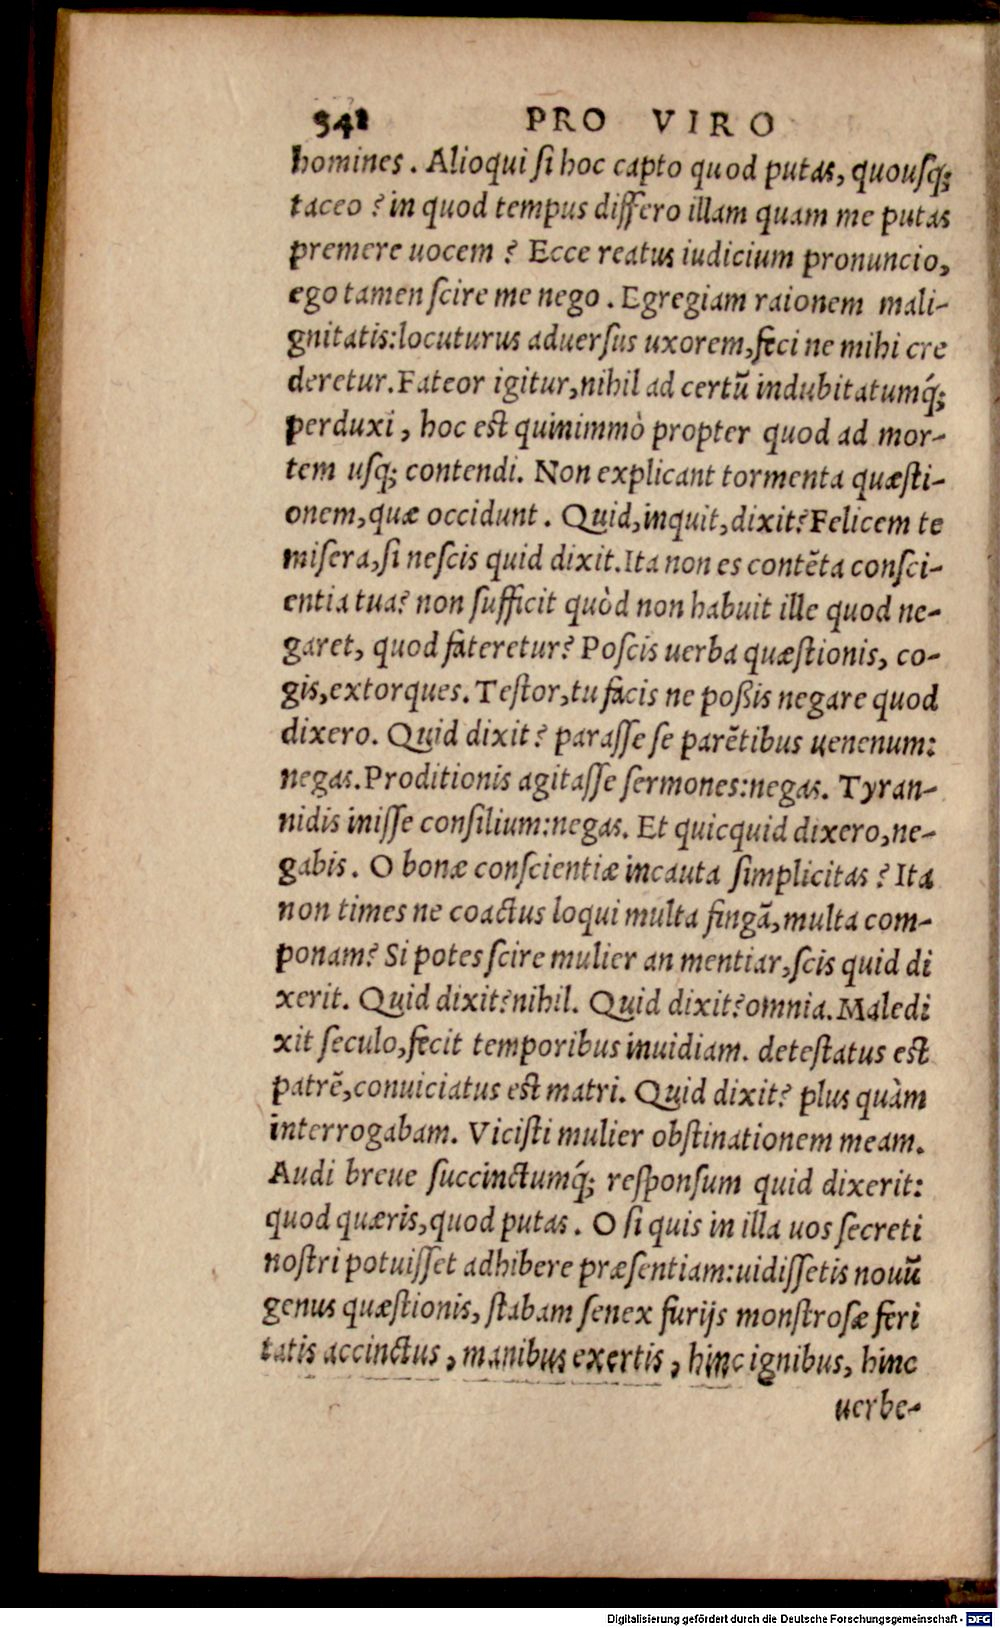 342 PRO VIRO
homines. Alioqui si hoc capto quod putas, quousq;
taceo? in quod tempus differo illam quam me putas
premere uocem? Ecce reatus iudicium pronuncio,
ego tamen scire me nego. Egregiam raionem mali-
gnitatis: locuturus aduersus uxorem, feci ne mihi cre
deretur. Fateor igitur, nihil ad certũ indubitatumq́;
perduxi, hoc est quinimmò propter quod ad mor-
tem usq; contendi. Non explicant tormenta quæsti-
onem, quæ occidunt. Quid, inquit, dixit? Felicem te
misera, si nescis quid dixit. Ita non es contẽta consci-
entia tua? non sufficit quòd non habuit ille quod ne-
garet, quod fateretur? Poscis uerba quæstionis, co-
gis, extorques. Testor, tu facis ne poßis negare quod
dixero. Quid dixit? parasse se parẽtibus uenenum:
negas. Proditionis agitasse sermones: negas. Tyran-
nidis inisse consilium: negas. Et quicquid dixero, ne-
gabis. O bonæ conscientiæ incauta simplicitas? Ita
non times ne coactus loqui multa fingã, multa com-
ponam? Si potes scire mulier an mentiar, scis quid di
xerit. Quid dixit? nihil. Quid dixit? omnia. Maledi
xit seculo, fecit temporibus inuidiam. detestatus est
patrẽ, conuiciatus est matri. Quid dixit? plus quàm
interrogabam. Vicisti mulier obstinationem meam.
Audi breue succinctumq́; responsum quid dixerit:
quod quæris, quod putas. O si quis in illa uos secreti
nostri potuisset adhibere præsentiam: uidissetis nouũ
genus quæstionis, stabam senex furijs monstrosæ feri
tatis accinctus, manibus exertis, hinc ignibus, hinc
uerbe-
Digitalisierung gefördert durch die Deutsche Forschungsgemeinschaft - DFG